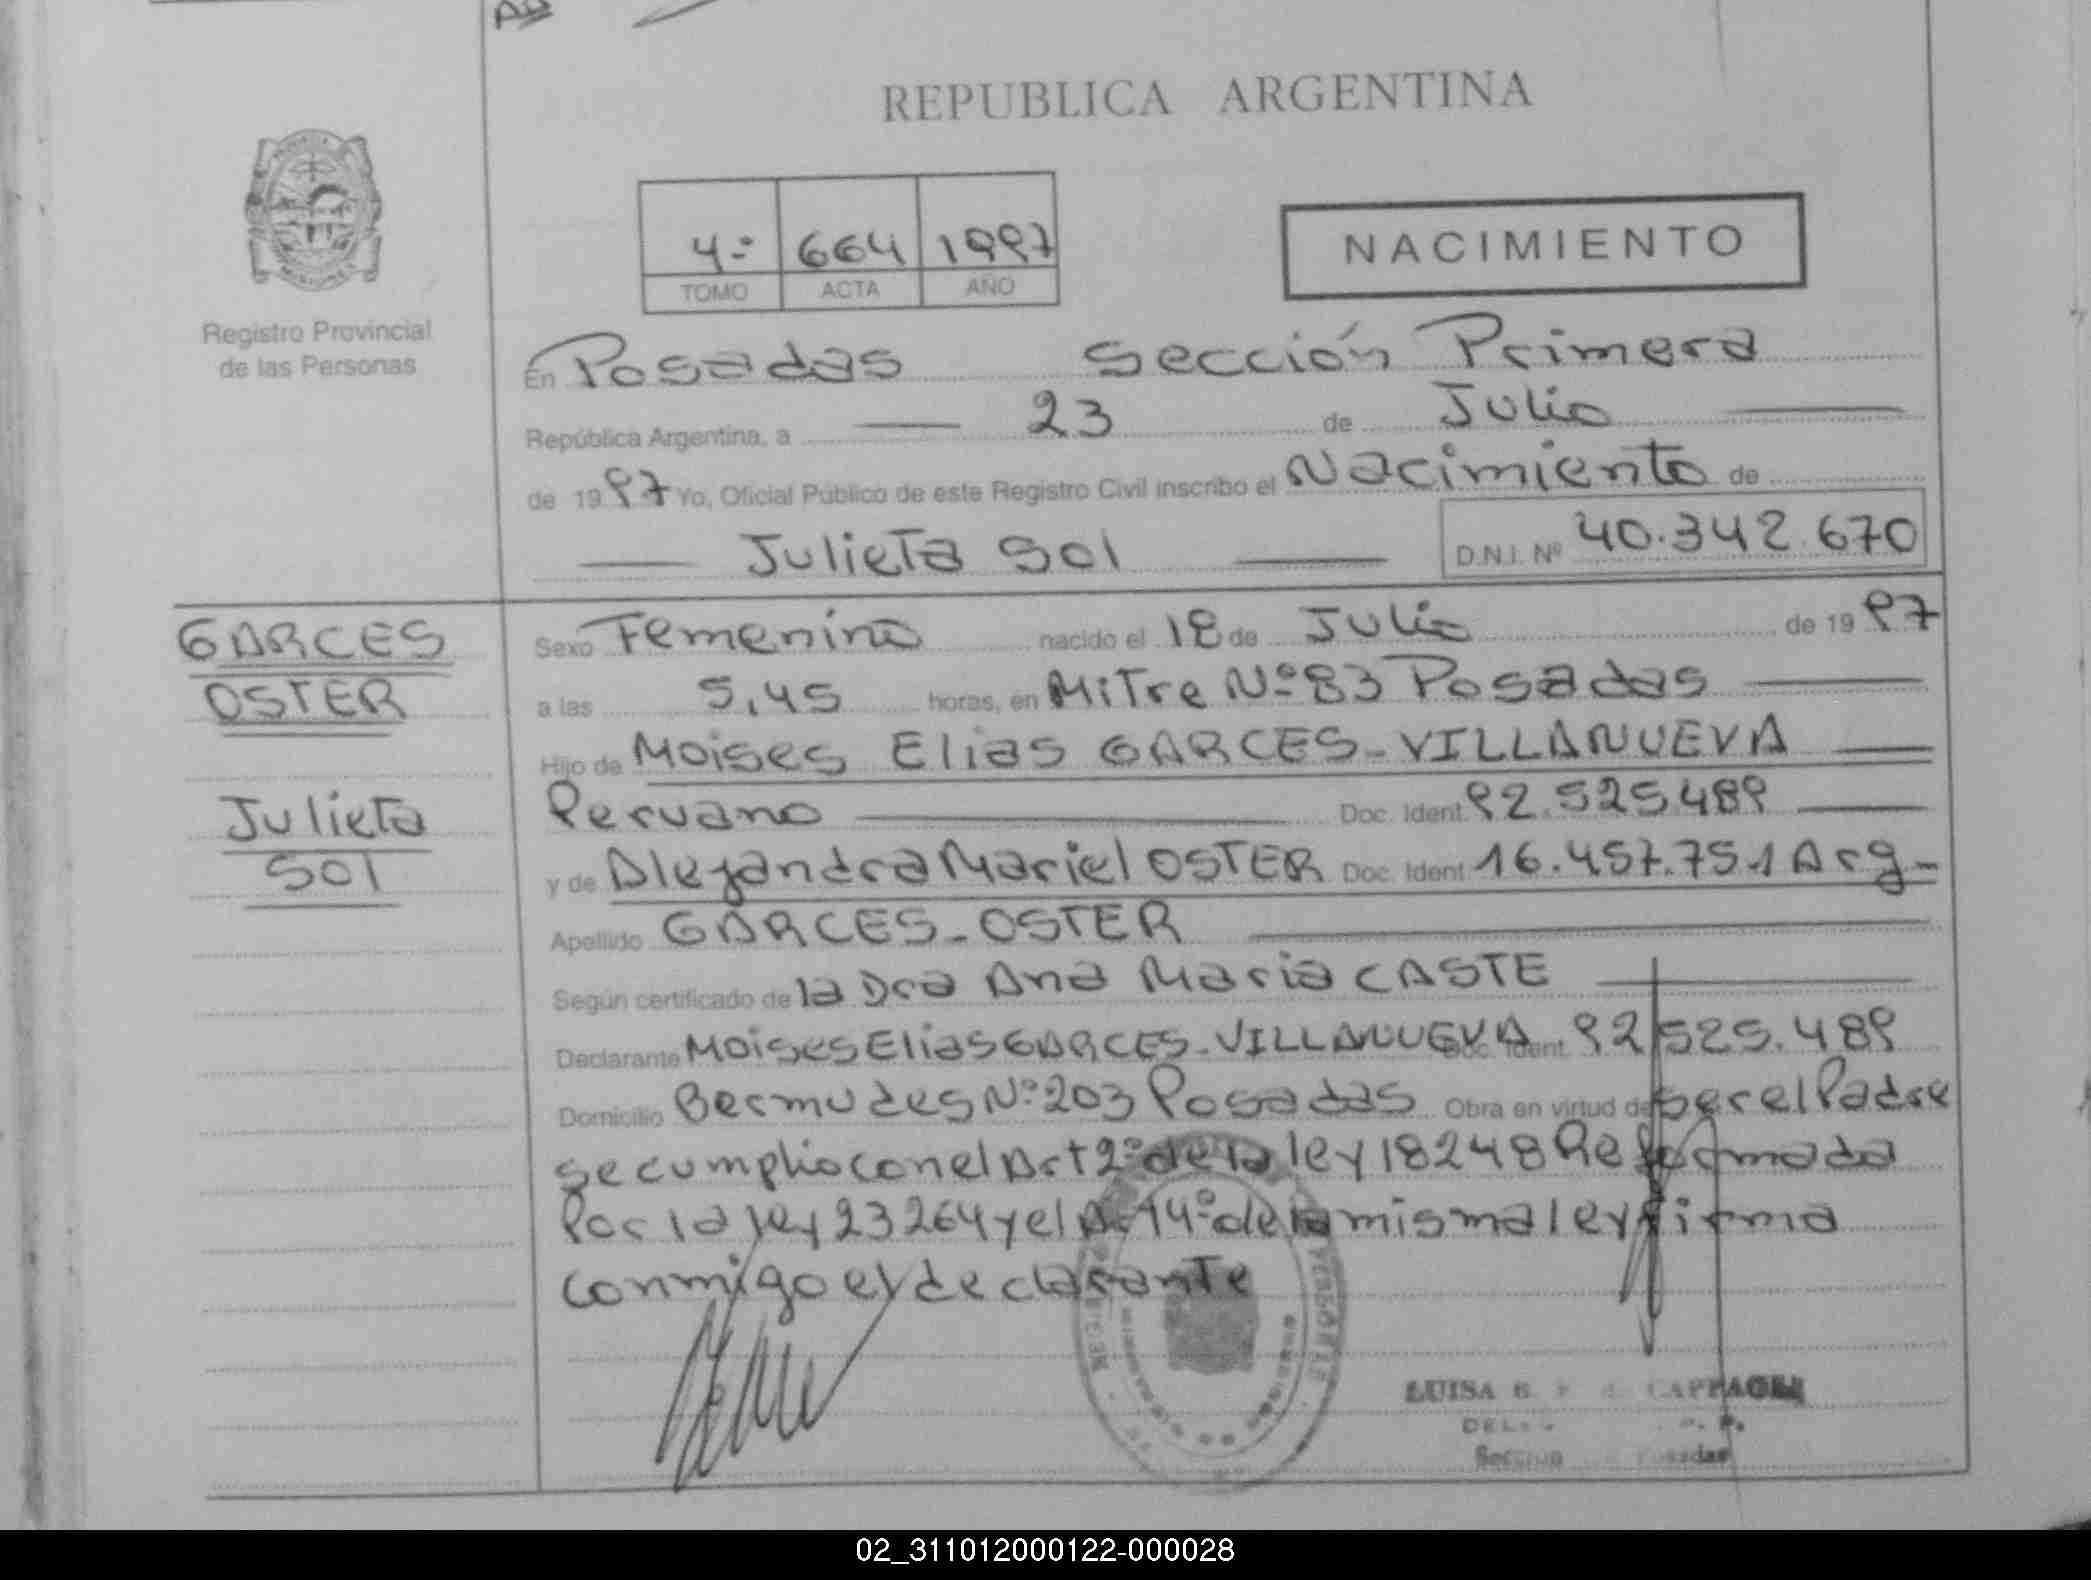 REPUBLICA ARGENTINA
4-º 664 1997
TOMO ACTA AÑO
NACIMIENTO
Registro Provincial
de las Personas
En Posadas Sección Primera
República Argentina, a 23 de Julio
de 1997 Yo, Oficial Público de este Registro Civil inscribo el Nacimiento de
Julieta Sol D.N.I. Nº 40.342.670
GARCES
OSTER
Julieta
Sol
Sexo Femenino nacido el 18 de Julio de 1997
a las 5,45 horas, en Mitre Nº 83 Posadas
Hijo de Moises Elias GARCES-VILLANUEVA
Peruano Doc. Ident. 92.525.489
y de Alejandra Mariel OSTER Doc. Ident. 16.457.751 Arg-
Apellido GARCES-OSTER
Según certificado de la Dra Ana Maria CASTE
Declarante Moises Elias GARCES-VILLANUEVA Doc. Ident. 92.525.489
Domicilio Bermudes Nº 203 Posadas Obra en virtud de ser el Padre
se cumplio con el Art 2º de la ley 18248 Reformada
Por la ley 23264 y el Art 4º de la misma ley firma
conmigo el declarante
LUISA
Seccion Posadas
02_311012000122-000028